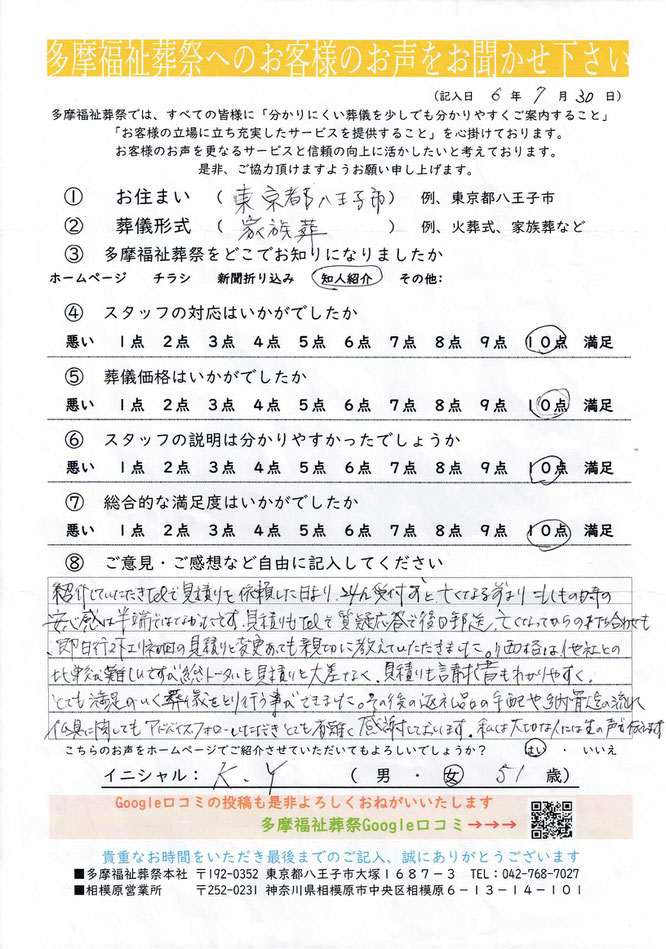 多摩福祉葬祭へのお客様のお声をお聞かせ下さい
(記入日 6 年 7 月 30 日)
多摩福祉葬祭では、すべての皆様に「分かりにくい葬儀を少しでも分かりやすくご案内すること」
「お客様の立場に立ち充実したサービスを提供すること」を心掛けております。
お客様のお声を更なるサービスと信頼の向上に活かしたいと考えております。
是非、ご協力頂けますようお願い申し上げます。
① お住まい ( 東京都八王子市 ) 例、東京都八王子市
② 葬儀形式 ( 家族葬 ) 例、火葬式、家族葬など
③ 多摩福祉葬祭をどこでお知りになりましたか
ホームページ チラシ 新聞折り込み 知人紹介 その他:
④ スタッフの対応はいかがでしたか
悪い 1点 2点 3点 4点 5点 6点 7点 8点 9点 10点 満足
⑤ 葬儀価格はいかがでしたか
悪い 1点 2点 3点 4点 5点 6点 7点 8点 9点 10点 満足
⑥ スタッフの説明は分かりやすかったでしょうか
悪い 1点 2点 3点 4点 5点 6点 7点 8点 9点 10点 満足
⑦ 総合的な満足度はいかがでしたか
悪い 1点 2点 3点 4点 5点 6点 7点 8点 9点 10点 満足
⑧ ご意見・ご感想など自由に記入してください
紹介していただきtelで見積りを依頼した日より、24h受付ずと、亡くなる 時の
安心感は半端ではなかったです。見積りもtelで質疑応答で後日郵送、亡くなってからの打ち合わせも
即日行って下さり初回の見積りと変更あっても親切に教えていただきました。価格は他社との
比較が難しいですが総トータルも見積りと大差なく、見積りも請求書もわかりやすく。
とても満足のいく葬儀をとり行う事ができました。その後の返礼品の手配や納骨迄の流れ
仏具に関してもアドバイスフォローしていただきとても有難く感謝しております。私は大切な人には生の声を伝えます
こちらのお声をホームページでご紹介させていただいてもよろしいでしょうか? はい ・ いいえ
イニシャル: K.Y ( 男 ・ 女 51 歳)
Google口コミの投稿も是非よろしくおねがいいたします
多摩福祉葬祭Google口コミ→→→
貴重なお時間をいただき最後までのご記入、誠にありがとうございます
■多摩福祉葬祭本社 〒192-0352 東京都八王子市大塚1687-3 TEL:042-768-7027
■相模原営業所 〒252-0231 神奈川県相模原市中央区相模原6-13-14-101